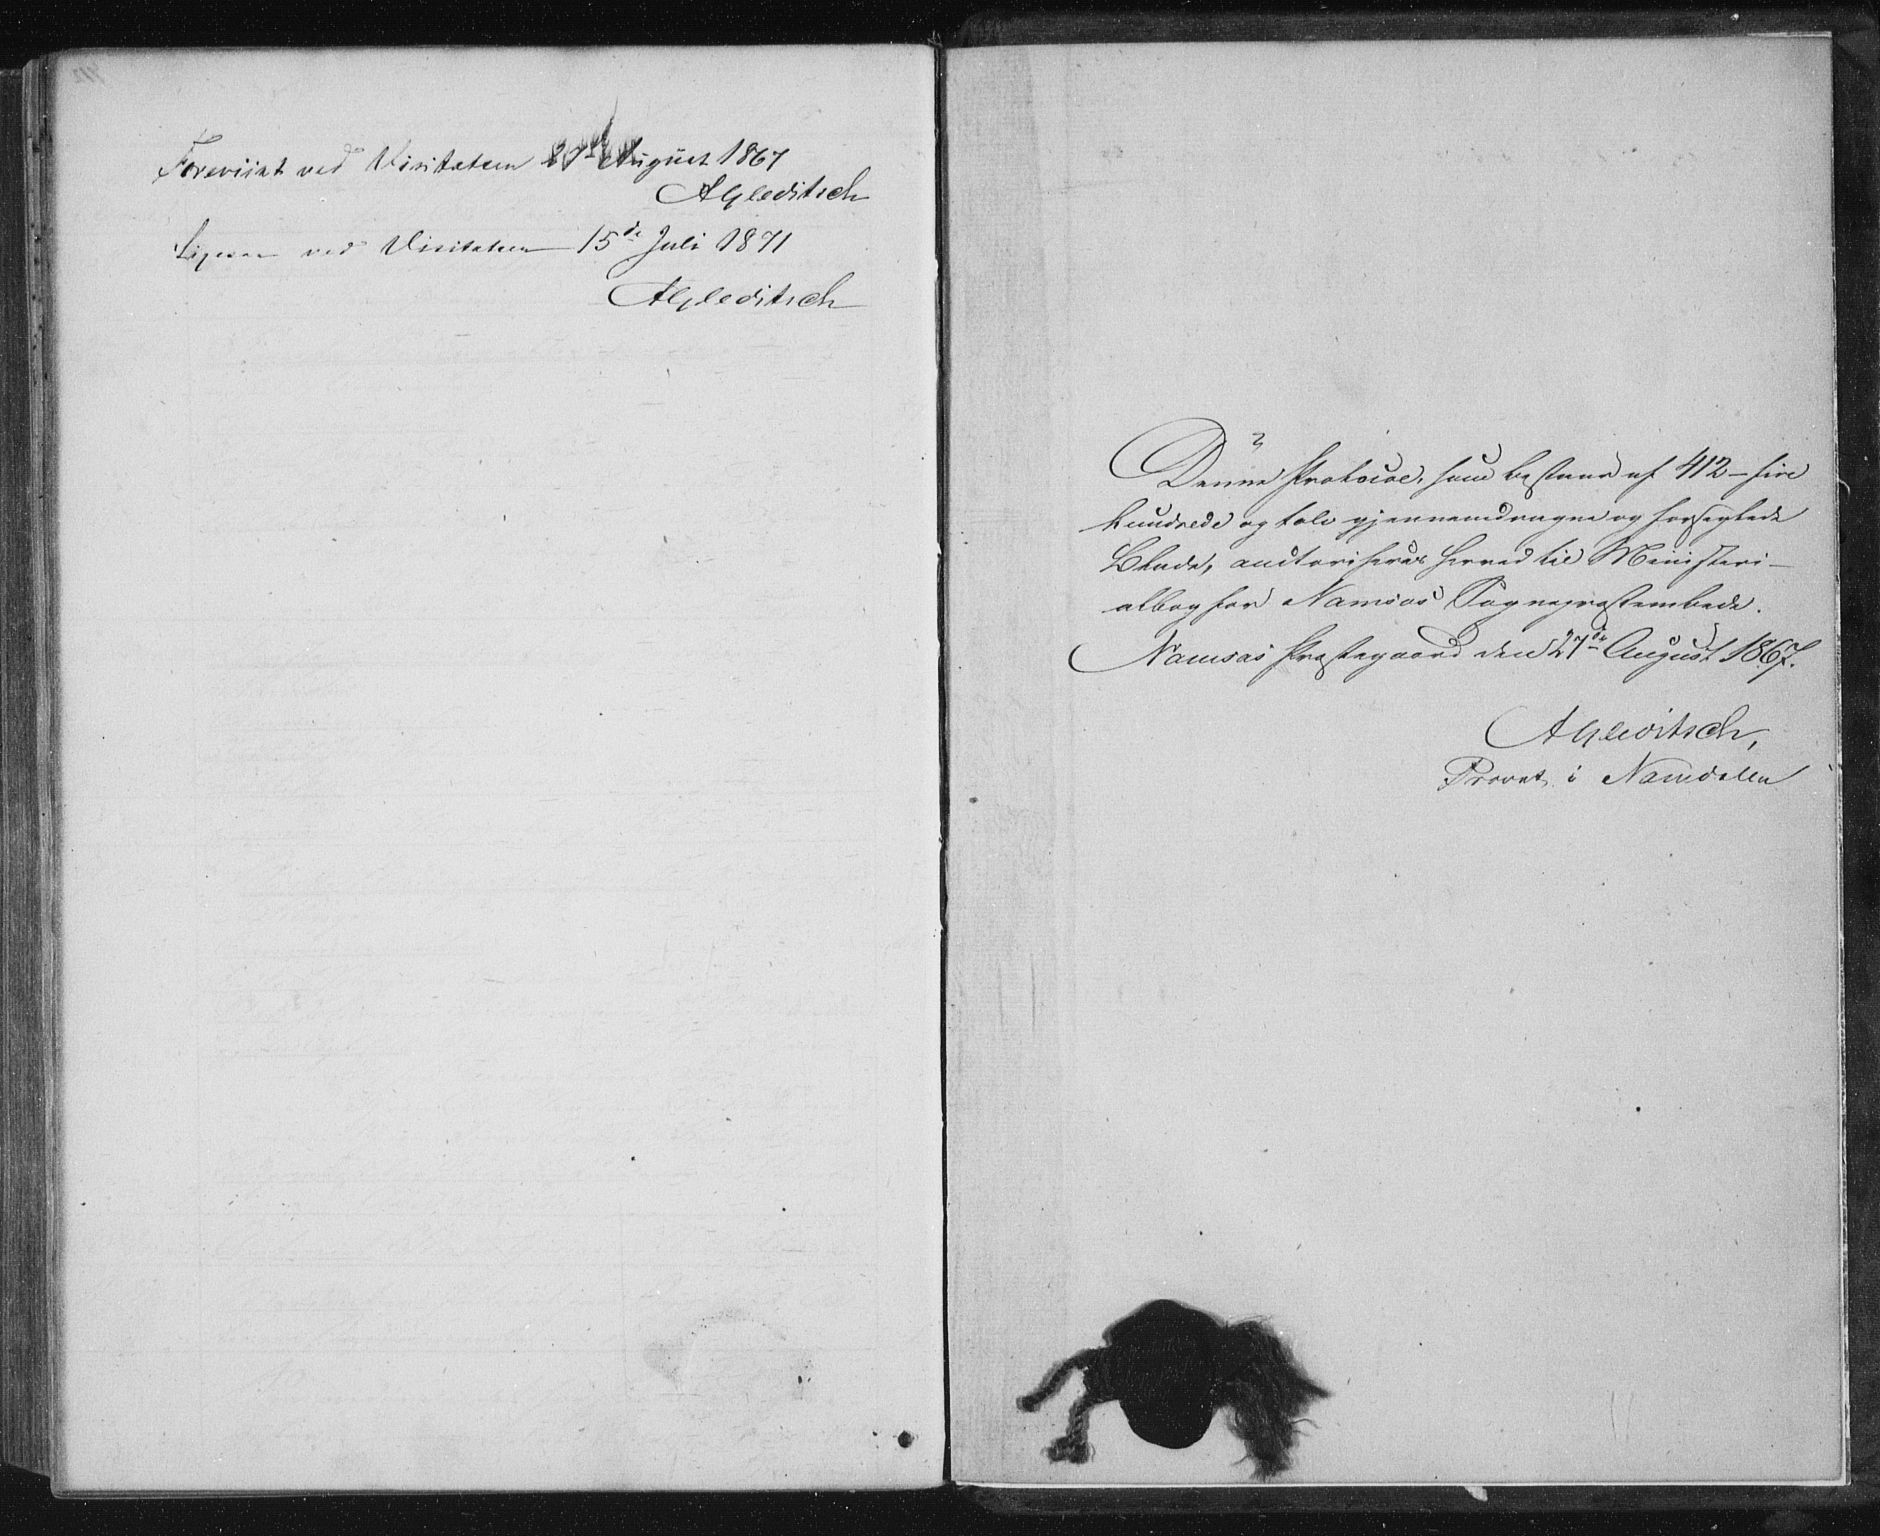 Foreviist ved Visitatsen 27 August 1867
AGleditsch
Ligesaa ved Visitatsen 15de Juli 1871
AGleditsch
Denne Protocol, som bestaar af 412 – fire
hundrede og tolv gjennemdragne og forseglede
Blade, auctoriseres herved til Ministeri–
albog for Namsos Sognepræstembede.
Namsos Præstegaard den 27de August 1867.
AGleditsch,
Provst i Namdalen